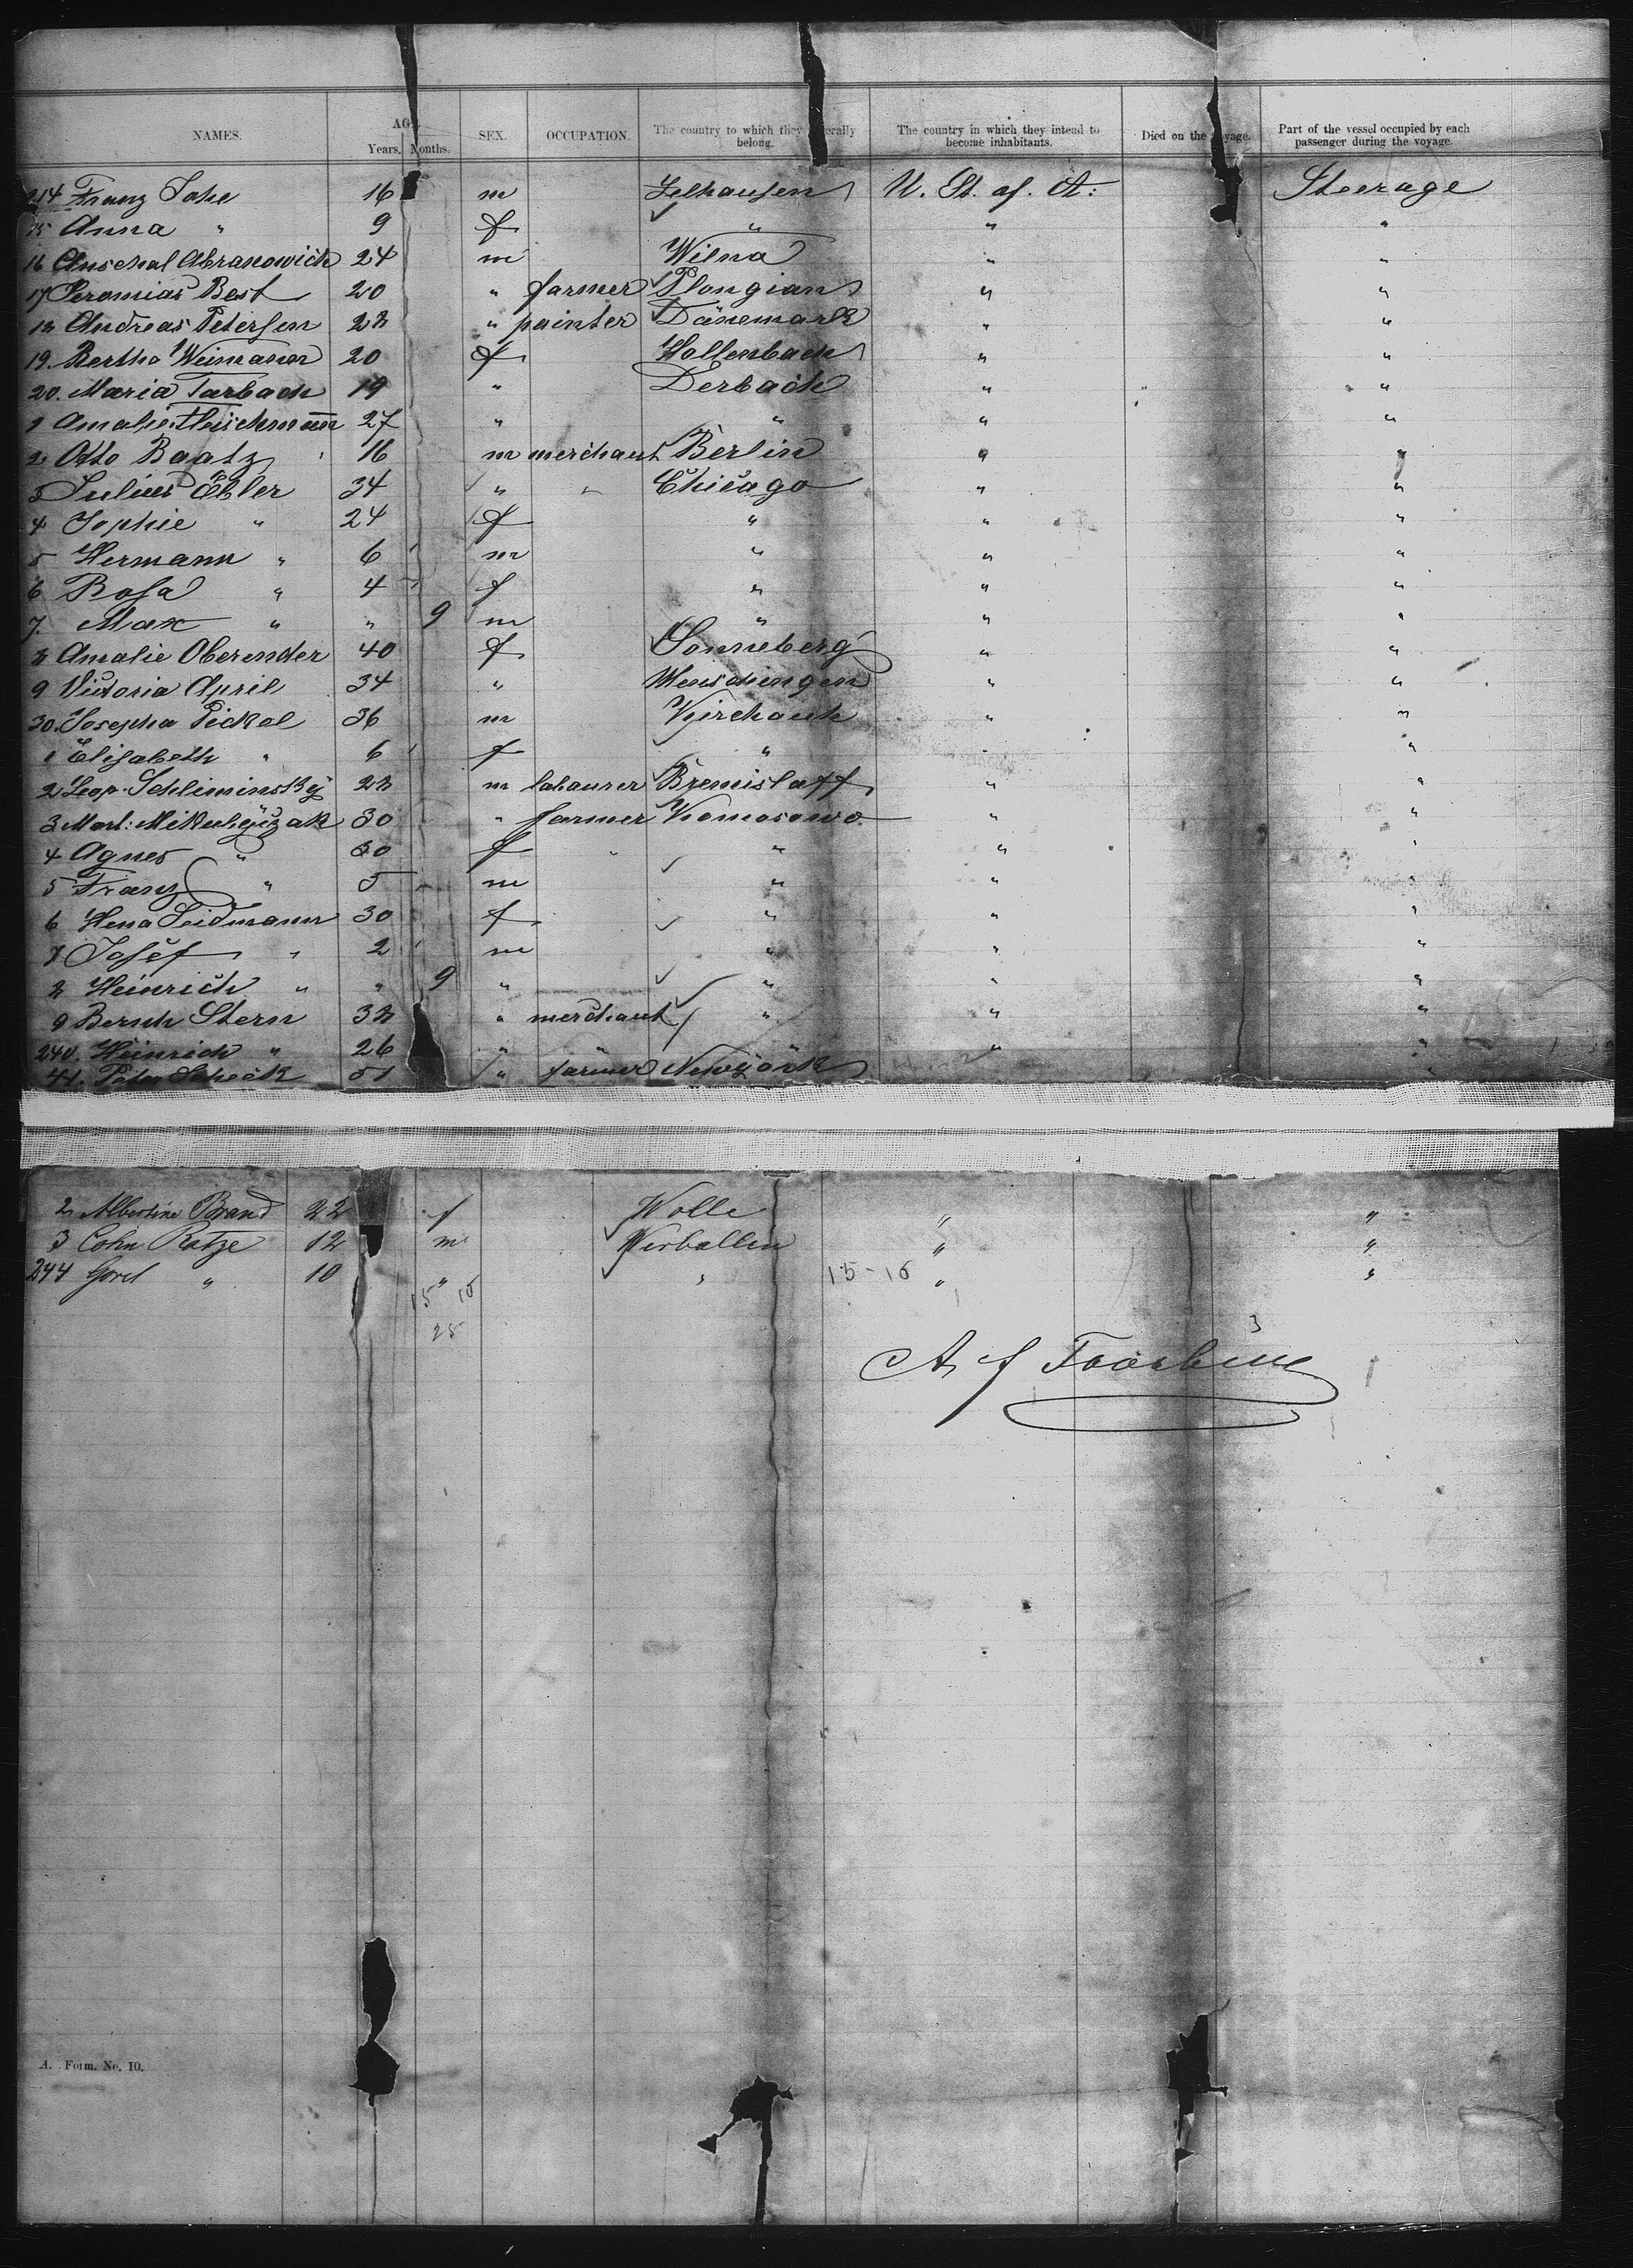 NAMES. AGE. Years. Months. SEX. OCCUPATION. The country to which they severally belong. The country in which they intend to become inhabitants. Died on the voyage. Part of the vessel occupied by each passenger during the voyage.
214 Franz Jahe 16 m U. St. of. A: Steerage
15 Anna " 9 f " " "
16 Abranowich 24 m Wilna " "
17 Jeromias Best 20 " farmer Plongian " "
18 Andreas Petersen 28 " painter Dänemark " "
19. Bertha Weimaner 20 f Hollenbach " "
20. Maria Tarbach 19 " Derbach " "
1 Amalie Fleischmann 27 " " " "
2 Otto Baatz 16 m merchant Berlin " "
3 Julius Ebler 34 " " Chicago " "
4 Sophie " 24 f " " "
5 Hermann " 6 m " " "
6 Rosa " 4 f " " "
7. Max " " 9 m " " "
8 Amalie Oberender 40 f Sonneberg " "
9 Victoria April 34 " " "
30. Josepha Pickel 36 m " "
1 Elisabeth " 6 f " " "
2 Leop. Schliminsky 28 m labaurer " "
3 Mart: 30 " farmer Komosowo " "
4 Agnes " 30 f " " " "
5 Franz " 5 m " " "
6 Hena Seidmann 30 f " " "
7 Josef " 2 m " " "
8 Heinrich " " 9 " " " "
9 Bernh Stern 38 " merchant " " "
240. Heinrich " 26 " " "
41. Peter Scheck 51 " farmer Newyork "
2 Albertine Brand 22 f Wolle " "
3 Cohn Ratze 12 m Werballen " "
244 " 10 " " 15-16 " "
15 10
25
3
A. Form. No. 10.